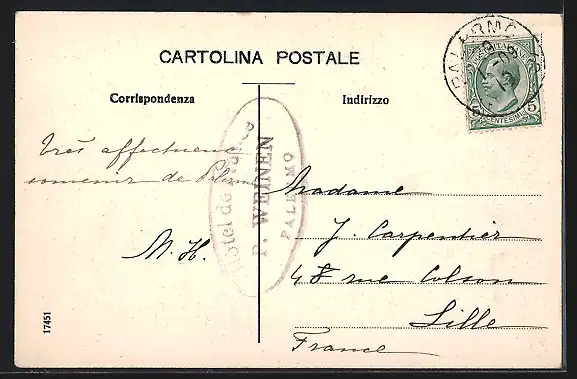 CARTOLINA POSTALE
Corrispondenza
Indirizzo
PALERMO
CENTESIMI 5
Très affectueux
souvenir de Palerme
M. H.
Hôtel de France
P. WEINEN
PALERMO
Madame
J. Carpentier
48 rue Colson
Lille
France
17451